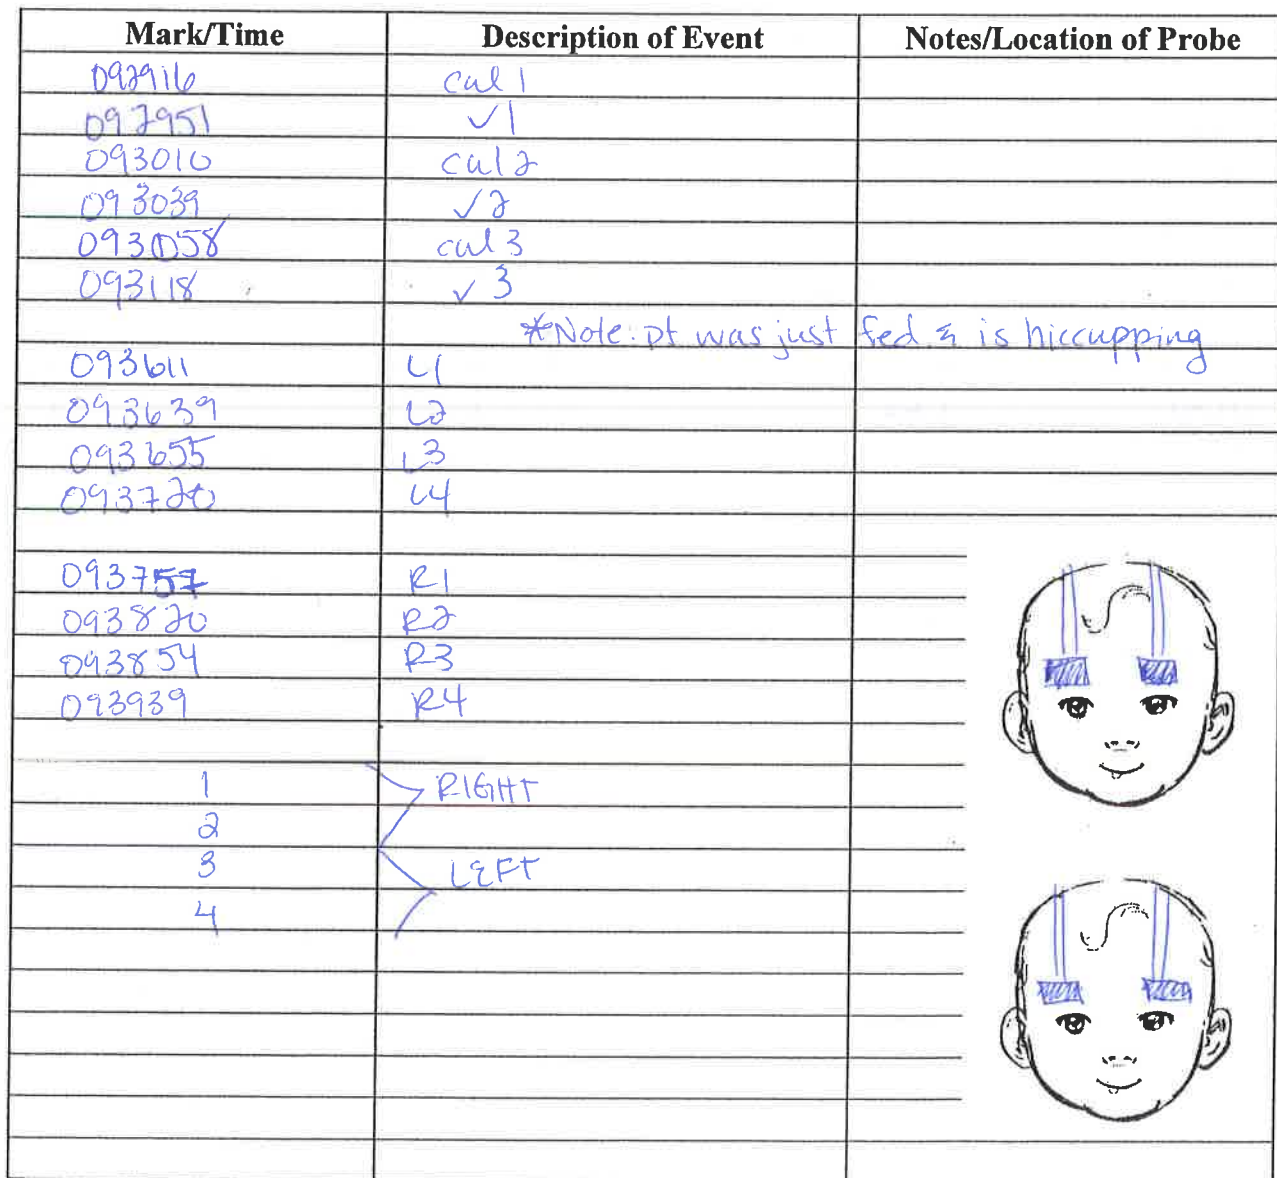 Mark/Time Description of Event Notes/Location of Probe
092916 cal 1
092951 ✓1
093010 cal 2
093039 ✓2
093058 cal 3
093118 ✓3
*Note: pt was just fed & is hiccupping
093611 L1
093639 L2
093655 L3
093720 L4
093757 R1
093820 R2
093854 R3
093939 R4
1 RIGHT
2
3 LEFT
4